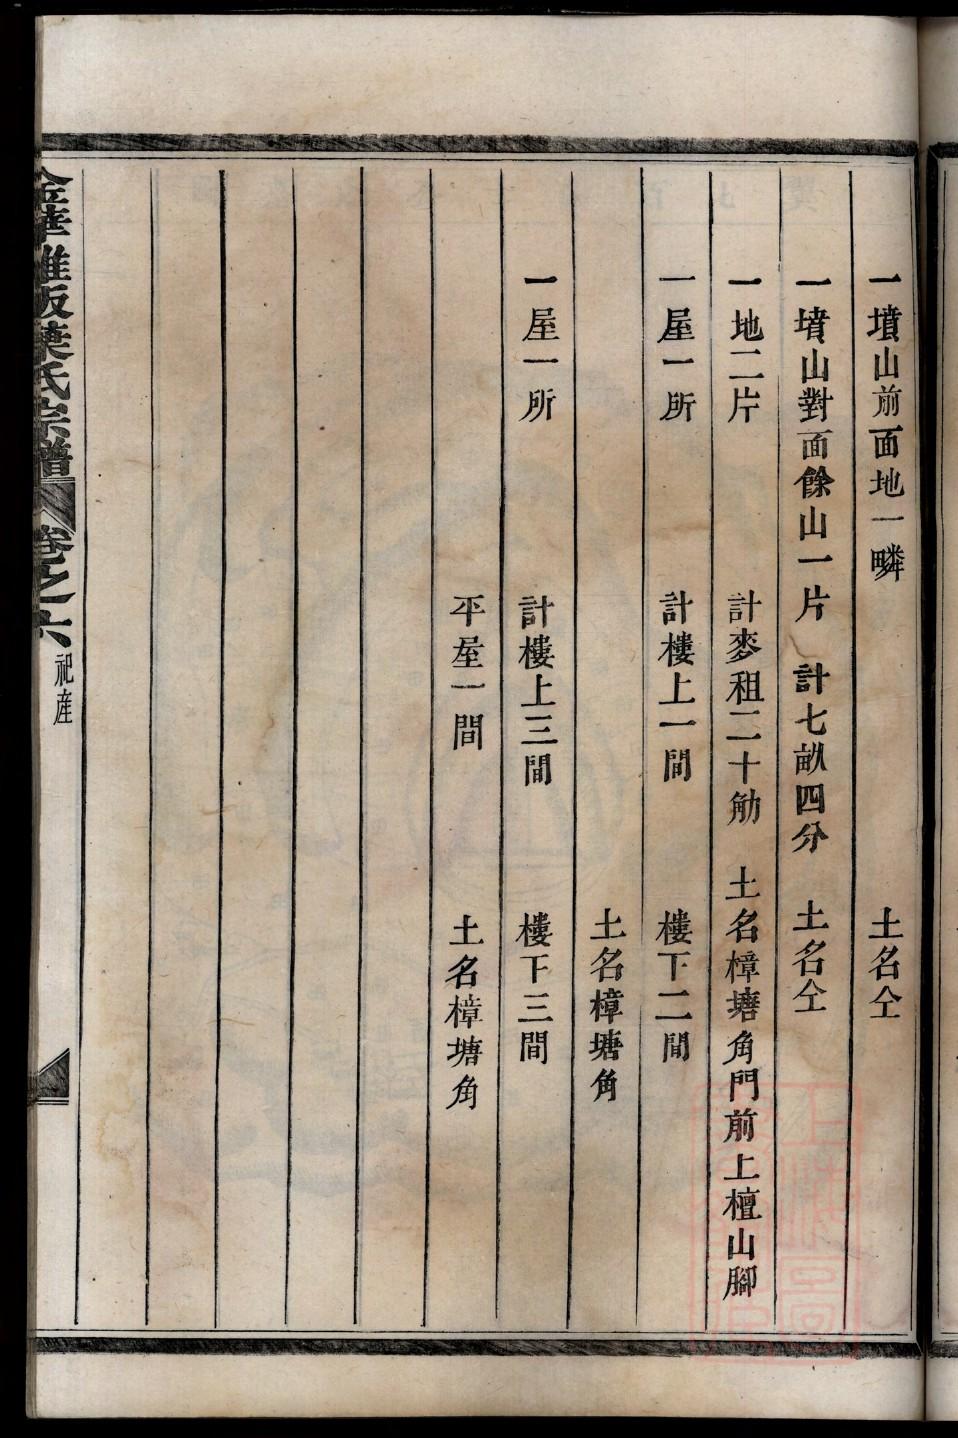 一墳山前面地一疄 土名仝
一墳山對面餘山一片 計七畝四分 土名仝
一地二片 計麥租二十觔 土名樟塘角門前上檀山腳
一屋一所 計樓上一間 樓下二間
土名樟塘角
一屋一所 計樓上三間 樓下三間
平屋一間 土名樟塘角
金華雅畈葉氏宗譜 卷之六 祀產